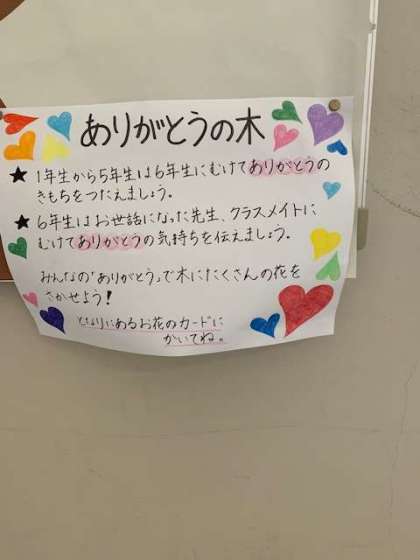 ありがとうの木
★1年生から5年生は6年生にむけてありがとうの
きもちをつたえましょう。
★6年生はお世話になった先生、クラスメイトに
むけてありがとうの気持ちを伝えましょう。
みんなの「ありがとう」で木にたくさんの花を
さかせよう!
となりにあるお花のカードに
かいてね。